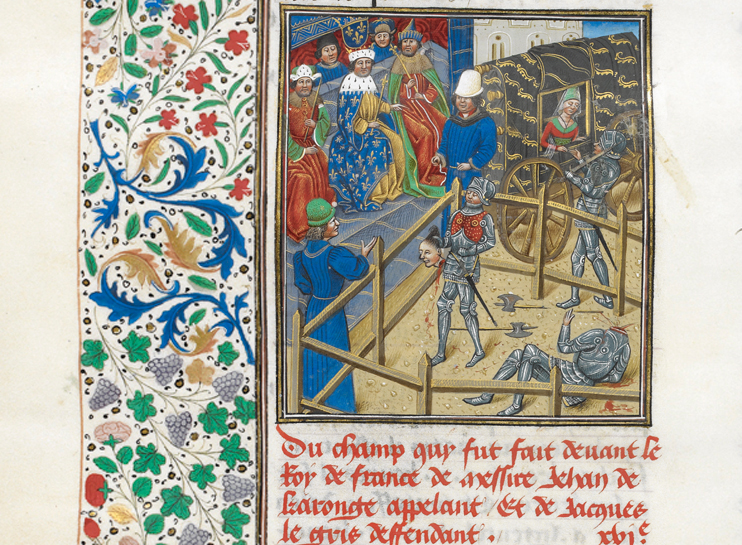 Du champ quy fut fait devant le
Roy de france de messire Jehan de
karonge appelant Et de Jacques
le gris deffendant . xvj^e